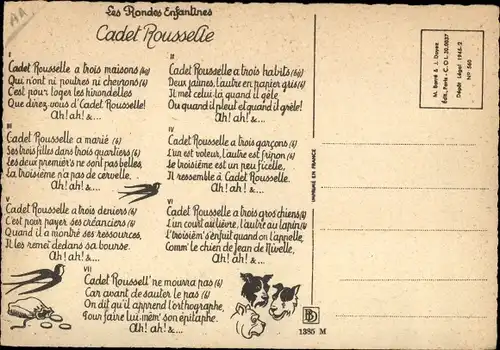 AA
Les Rondes Enfantines
Cadet Rousselle
I
Cadet Rousselle a trois maisons (bis)
Qui n'ont ni poutres ni chevrons (6)
C'est pour loger les hirondelles
Que direz-vous d'Cadet Rousselle!
Ah! ah! &...
II
Cadet Rousselle a trois habits (bis)
Deux jaunes, l'autre en papier gris (6)
Il met celui-là quand il gèle
Ou quand il pleut et quand il grèle!
Ah! ah! &...
III
Cadet Rousselle a marié (6)
Ses trois filles dans trois quartiers (6)
Les deux premièr's ne sont pas belles,
La troisième n'a pas de cervelle.
Ah! ah! &...
IV
Cadet Rousselle a trois garçons (6)
L'un est voleur, l'autre est fripon (6)
Le troisième est un peu ficelle,
Il ressemble à Cadet Rousselle.
Ah! ah! &...
V
Cadet Rousselle a trois deniers (6)
C'est pour payer ses créanciers (6)
Quand il a montré ses ressources,
Il les remet dedans sa bourse.
Ah! ah! &...
VI
Cadet Rousselle a trois gros chiens (6)
L'un court au lièvre, l'autre au lapin (6)
L'troisièm' s'enfuit quand on l'appelle,
Comm' le chien de Jean de Nivelle,
Ah! ah! &...
VII
Cadet Roussell' ne mourra pas (6)
Car avant de sauter le pas (6)
On dit qu'il apprend l'orthographe,
Pour faire lui-mêm' son épitaphe.
Ah! ah! &...
BD
1385 M
IMPRIMÉ EN FRANCE
M. Barré & J. Dayez
Édit., Paris - C. O. L. 30.0037
Dépôt Légal 1946-2
No 560